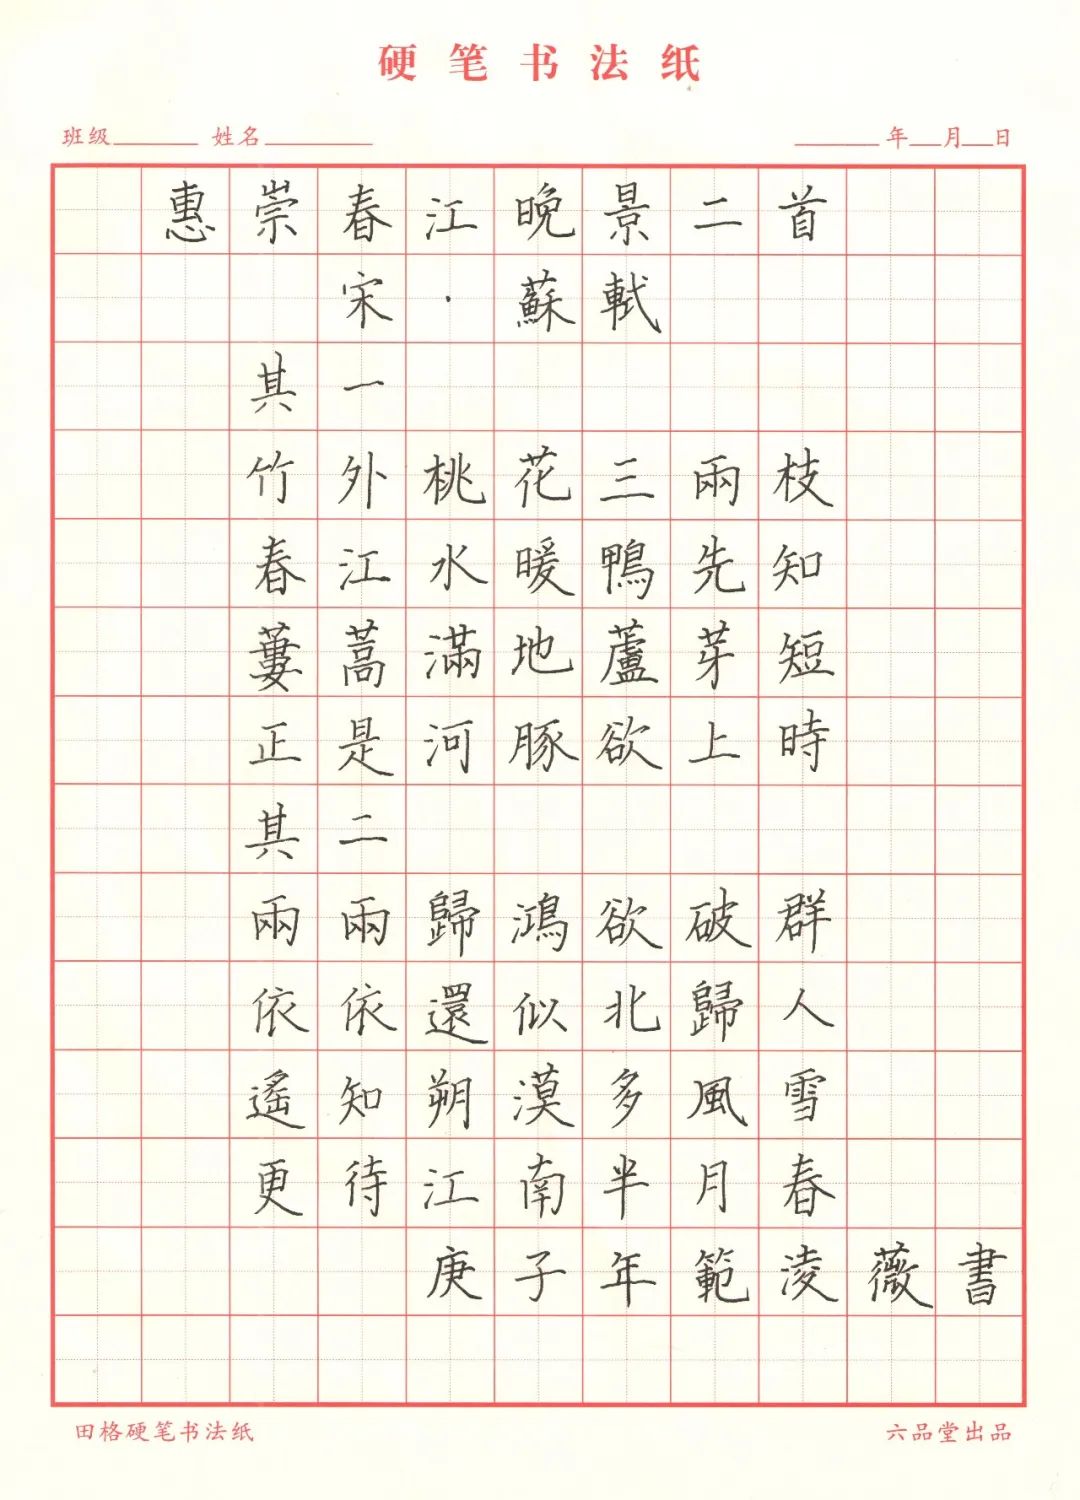 硬笔书法纸
班级 姓名 年 月 日
惠崇春江晚景二首
宋·蘇軾
其一
竹外桃花三兩枝
春江水暖鴨先知
蔞蒿滿地蘆芽短
正是河豚欲上時
其二
兩兩歸鴻欲破群
依依還似北歸人
遙知朔漠多風雪
更待江南半月春
庚子年範淩薇書
田格硬笔书法纸 六品堂出品